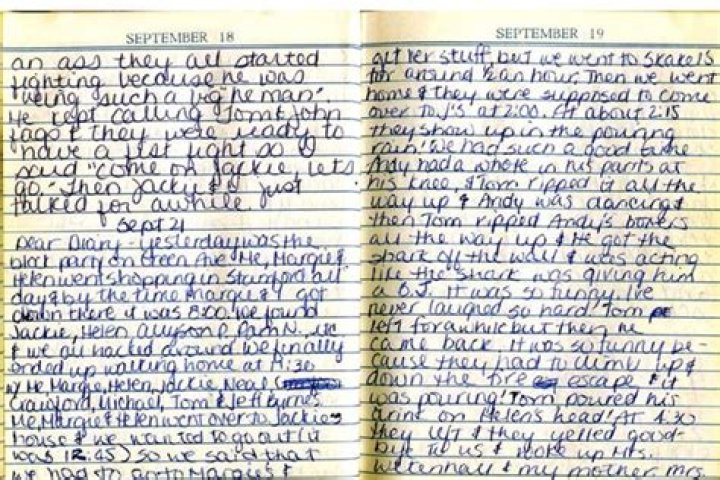 SEPTEMBER 18
an ass they all started
fighting because he was
"being such a big he man".
He kept calling Tom & John
fags & they were ready to
have a fist fight so I
said "come on Jackie, lets
go." Then Jackie & I just
talked for awhile.
Sept 21
Dear Diary - yesterday was the
block party on Green Ave. Me, Margie &
Helen went shopping in Stamford all
day & by the time Margie & I got
down there it was 8:00. We found
Jackie, Helen, Allyson P. Pam N., etc
& we all hacked around. We finally
ended up walking home at 11:30
w/ Me, Margie, Helen, Jackie, Neal
Crawford, Michael, Tom & Jeff Byrnes.
Me, Margie & Helen went over to Jackie's
house & we wanted to go out (it
was 12:45) so we said that
we had to go to Margie's &
SEPTEMBER 19
get her stuff, but we went to Skakels
for around ½ an hour. Then we went
home & they were supposed to come
over to J's at 2:00. At about 2:15
they show up in the pouring
rain! We had such a good time
Andy had a whole in his pants at
his knee, & Tom ripped it all the
way up & Andy was dancing &
then Tom ripped Andy's boxers
all the way up & He got the
shark off the wall & was acting
like the shark was giving him
a B.J. It was so funny. I've
never laughed so hard! Tom
left for awhile but then he
came back. It was so funny be-
cause they had to climb up &
down the fire escape & it
was pouring! Tom poured his
drink on Helen's head! At 4:30
they left & they yelled good-
bye to us & woke up Mrs.
Wetenhall & my mother. Mrs.